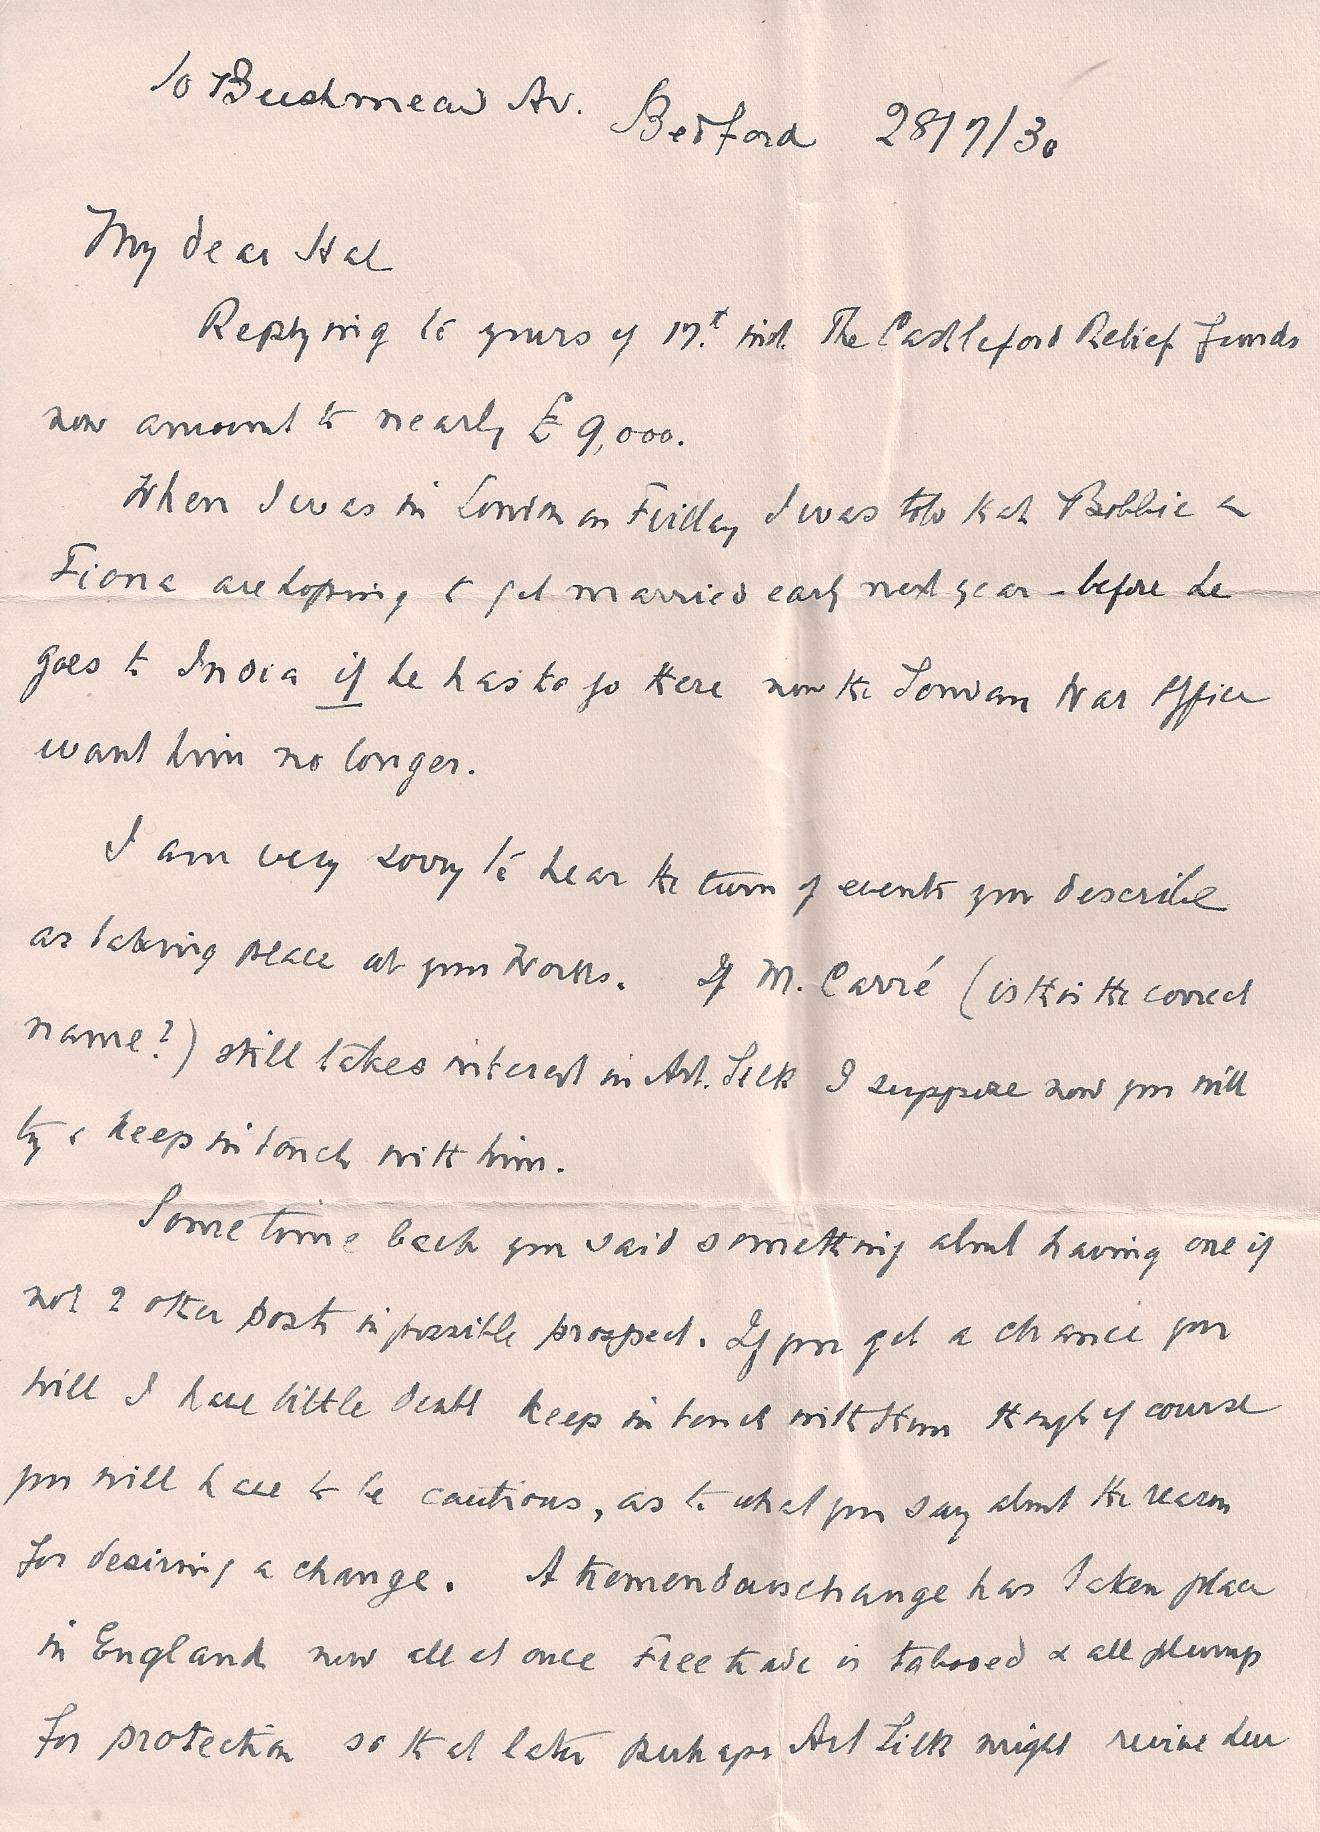 10 Bushmead Av. Bedford 28/7/30
My dear Hal
Replying to yours of 17.t inst. The Castleford Relief Funds
now amount to nearly £9,000.
When I was in London on Friday I was told that Bobbie &
Fiona are hoping to get married early next year - before he
goes to India if he has to go there now the London War Office
want him no longer.
I am very sorry to hear the turn of events you describe
as taking place at your Works. If M. Carré (is this the correct
name?) still takes interest in Art. Silk I suppose now you will
try & keep in touch with him.
Some time back you said something about having one if
not 2 other posts in possible prospect. If you get a chance you
will I have little doubt keep in touch with them though of course
you will have to be cautious, as to what you say about the reason
for desiring a change. A tremendous change has taken place
in England now all at once Free trade is tabooed & all plump
for protection so that later perhaps Art Silk might revive here